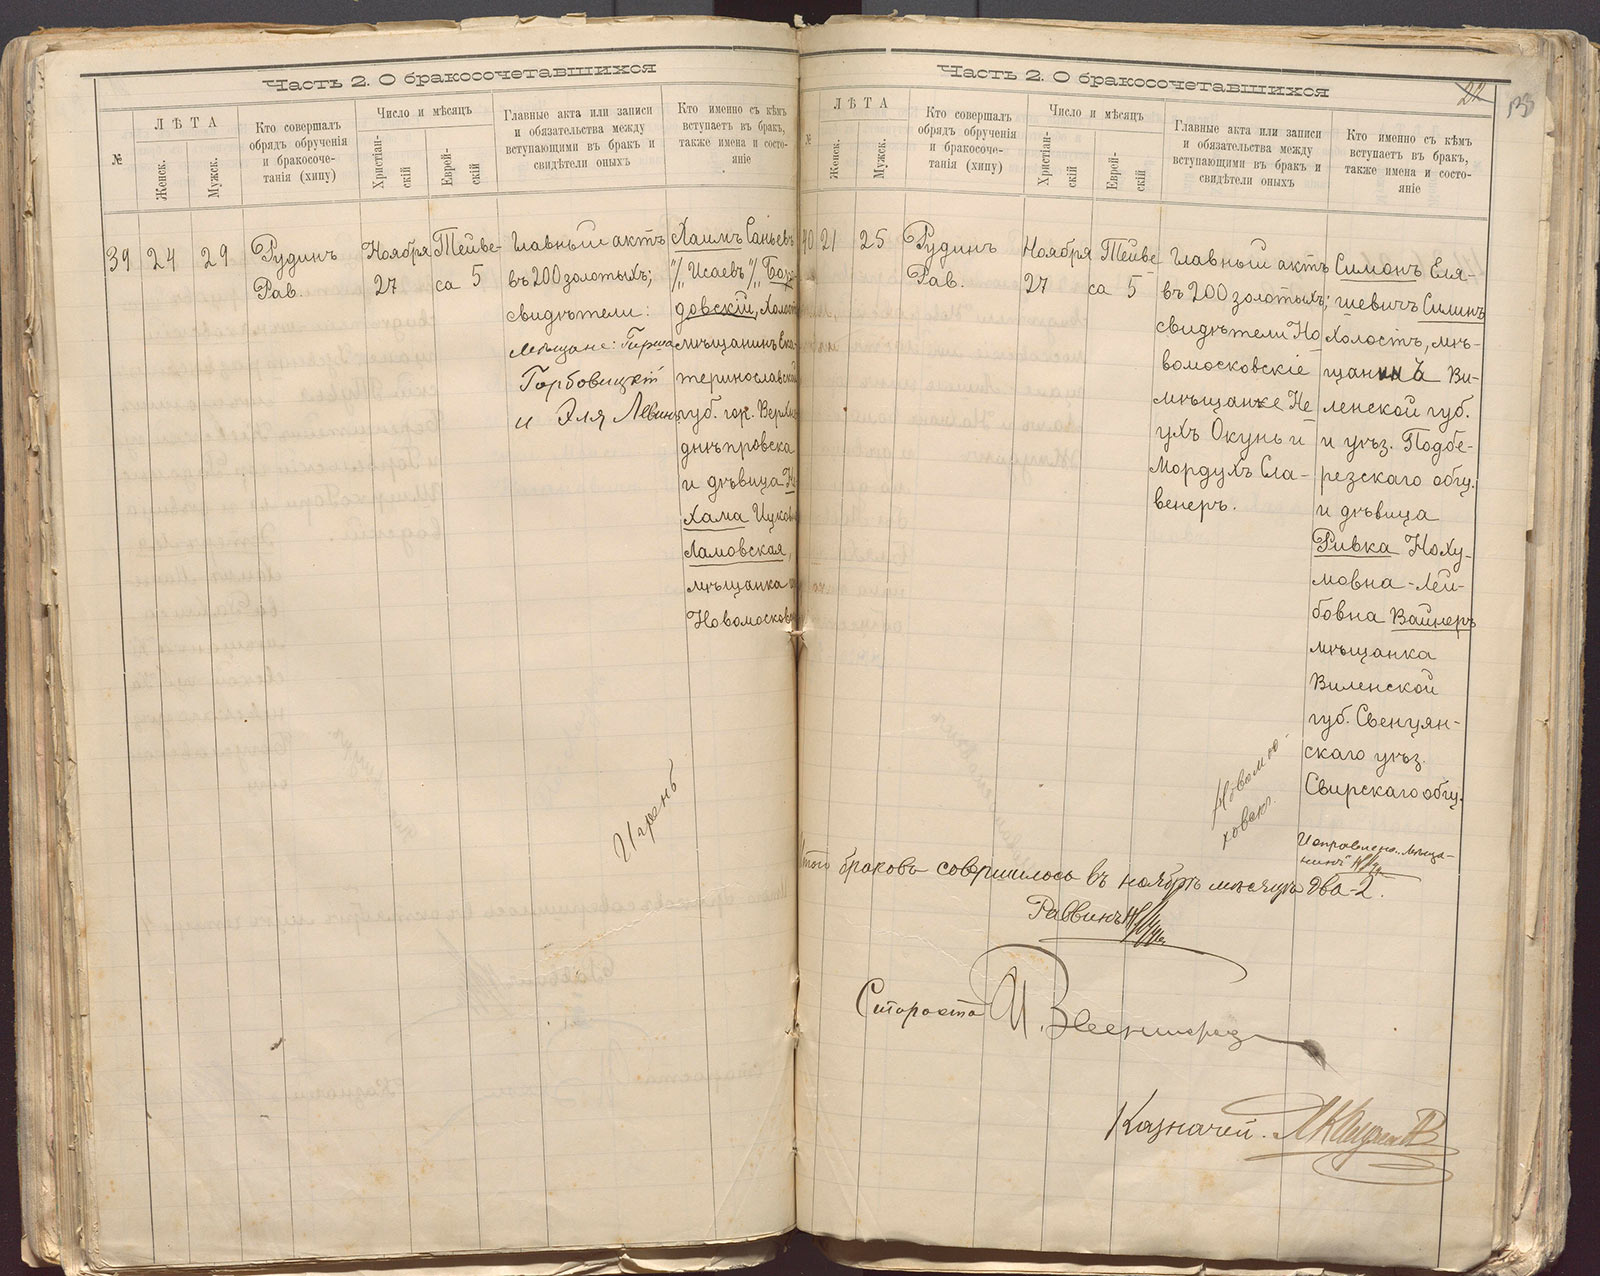 Часть 2. О бракосочетавшихся
№
ЛѢТА
Женск.
Мужск.
Кто совершалъ
обрядъ обрученія
и бракосоче-
танія (хипу)
Число и мѣсяцъ
Христіан-
скій
Еврей-
скій
Главные акта или записи
и обязательства между
вступающими въ бракъ и
свидѣтели оныхъ
Кто именно съ кѣмъ
вступаетъ въ бракъ,
также имена и состо-
яніе
39
24
29
Рудинъ
Рав.
Ноября
27
Тейве-
са 5
Главный актъ
въ 200 золотыхъ;
свидѣтели:
Мѣщане: Гирша
Горбовицкій
и Эля Левинъ
Хаимъ Саньевъ
"/ Исаевъ "/
довскій, Холост
мѣщанинъ Ека-
теринославской
губ. гор. Верхне
днѣпровска
и дѣвица Не
хама Ицков
Ламовская,
мѣщанка
Новомосков
Игрень
Часть 2. О бракосочетавшихся
22
№
ЛѢТА
Женск.
Мужск.
Кто совершалъ
обрядъ обрученія
и бракосоче-
танія (хипу)
Число и мѣсяцъ
Христіан-
скій
Еврей-
скій
Главные акта или записи
и обязательства между
вступающими въ бракъ и
свидѣтели оныхъ
Кто именно съ кѣмъ
вступаетъ въ бракъ,
также имена и состо-
яніе
40
21
25
Рудинъ
Рав.
Ноября
27
Тейве
са 5
Главный актъ
въ 200 золотыхъ;
свидѣтели Но
вомосковскіе
мѣщане Не
ухъ Окунь и
Мордухъ Сла-
венеръ.
Симонъ Еля-
шевичъ Силинъ
Холостъ, мѣ-
щанинъ Ви-
ленской губ.
и уѣз. Подбе-
резскаго общ.
и дѣвица
РивкаНоху-
мовна-Лей-
бовна Вайнеръ
мѣщанка
Виленской
губ. Свенцян-
скаго уѣз.
Свирскаго общ.
Исправлено: мѣща-
нинъ
Итого браковъ совершилось въ ноябрѣ мѣсяцѣ два-2.
Раввинъ
Староста
Казначей.